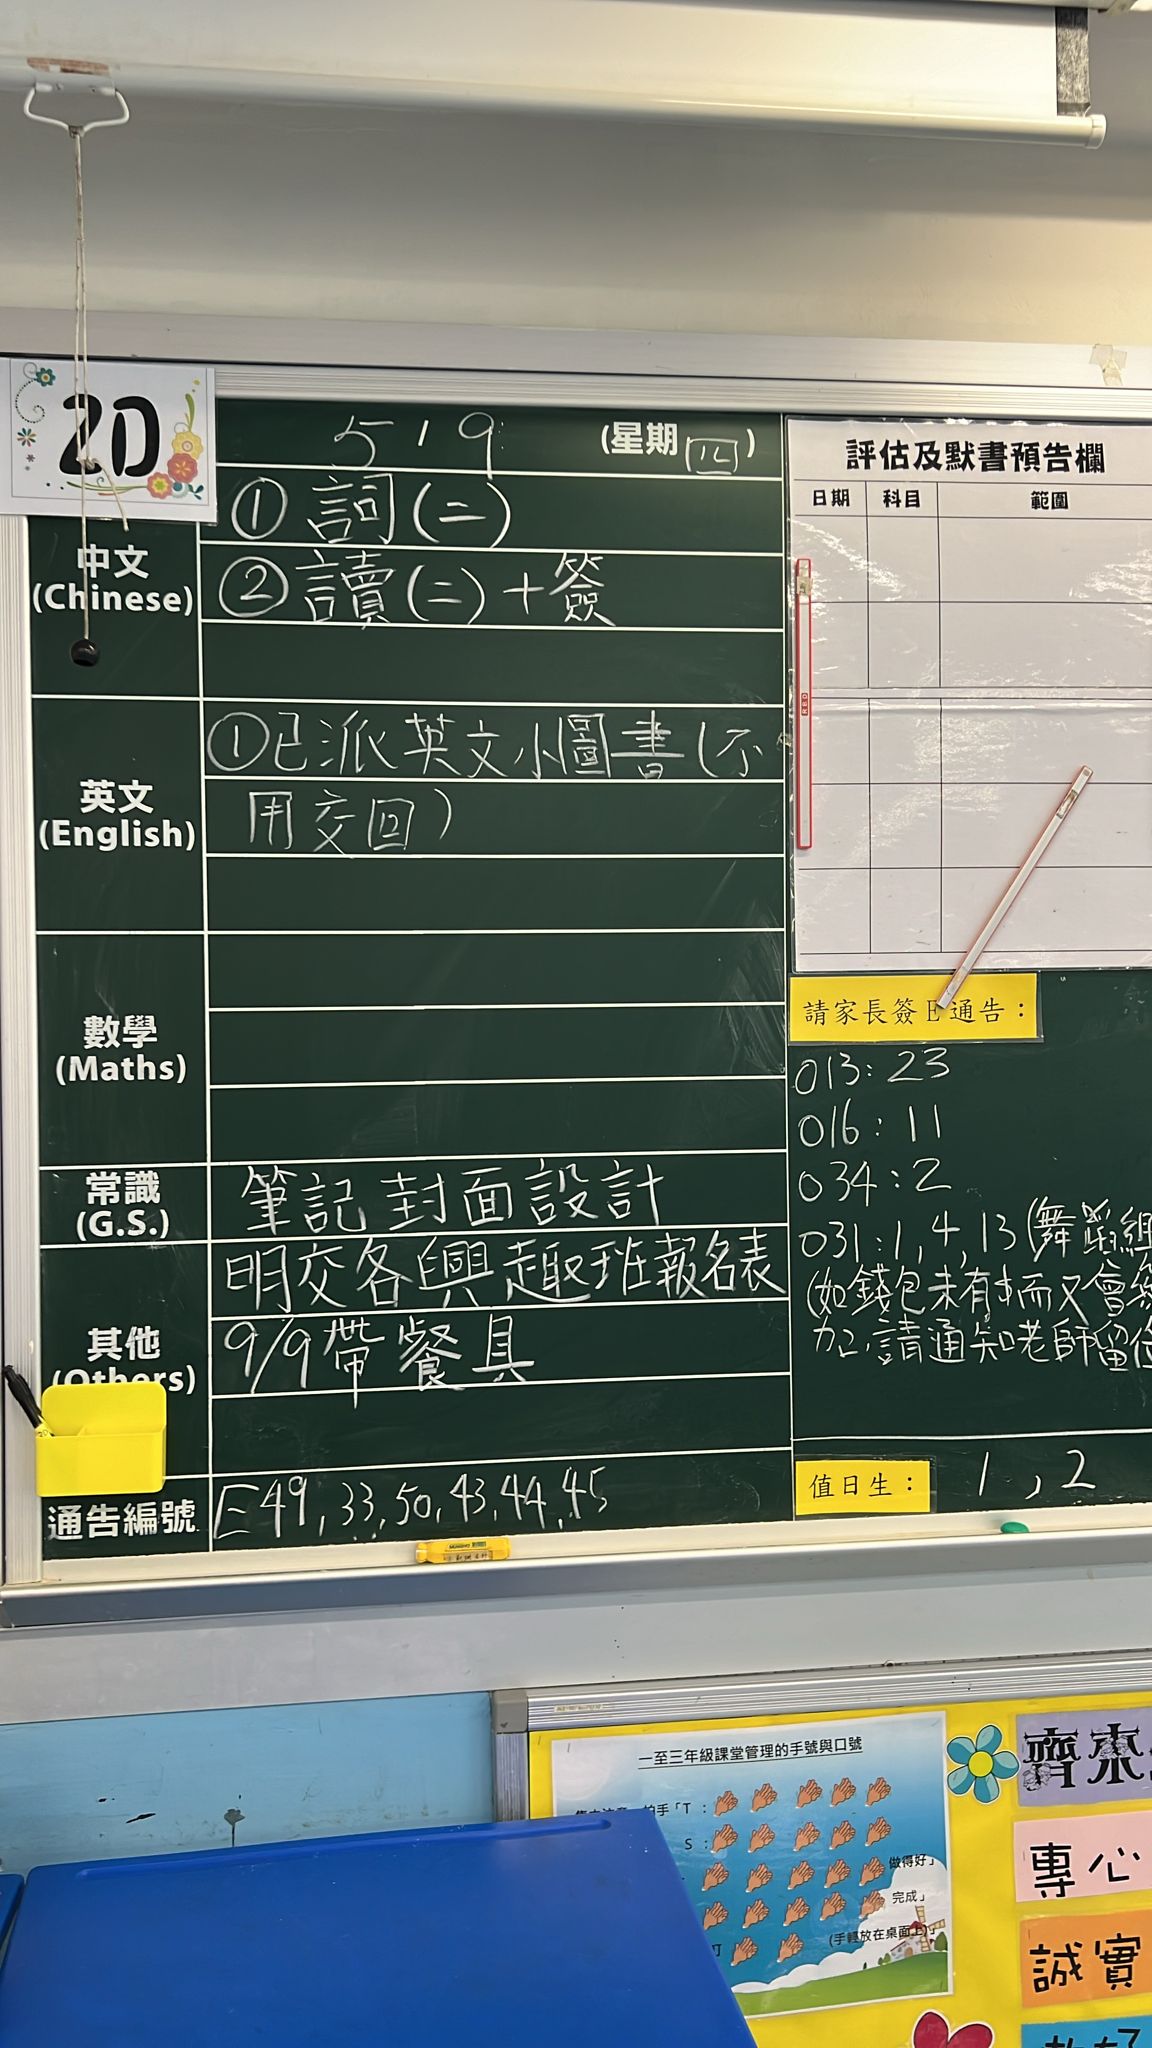 2D
5 ' 9 (星期 四)
中文
(Chinese)
① 詞(二)
② 讀(二)+簽
英文
(English)
①已派英文小圖書(不
用交回)
數學
(Maths)
常識
(G.S.)
筆記封面設計
其他
(Others)
明交各興趣班報名表
9/9帶餐具
通告編號
E49,33,50,43,44,45
評估及默書預告欄
日期 科目 範圍
請家長簽E通告:
013:23
016:11
034:2
031:1,4,13(舞蹈組
(如錢包未有而又會
加,請通知老師留位
值日生: 1,2
一至三年級課堂管理的手號與口號
拍手「T :
S :
做得好」
完成」
(手輕放在桌面上)」
齊來
專心
誠實